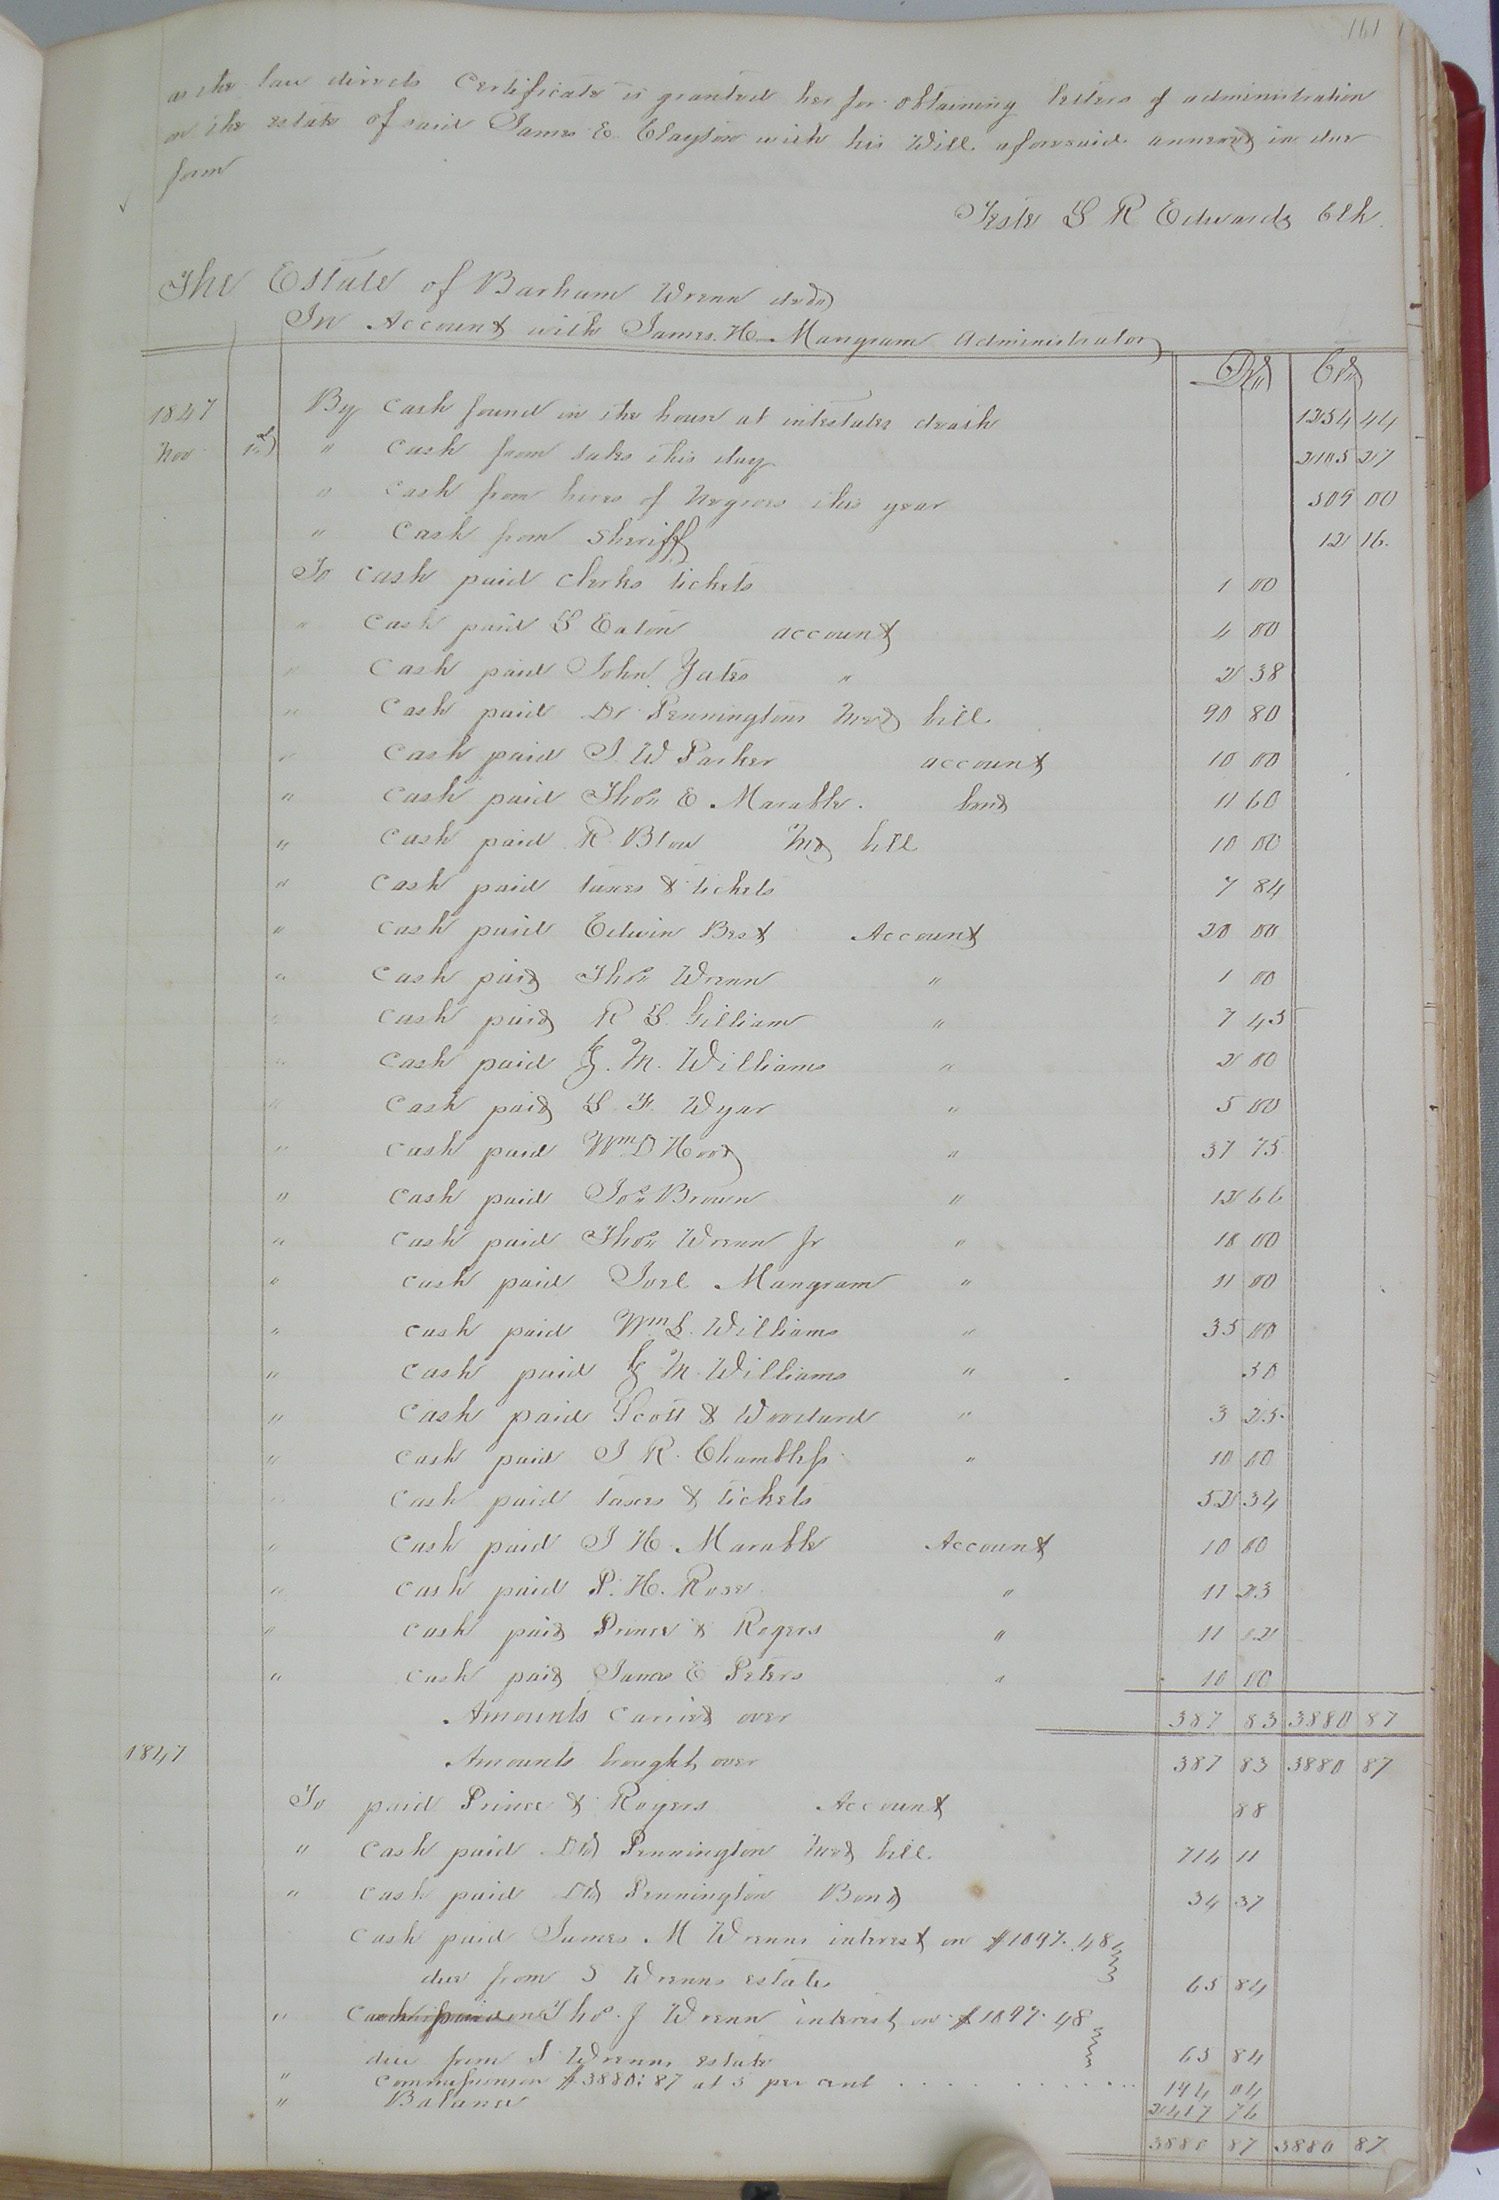 161
as the law directs Certificate is granted her for obtaining letters of administration
on the estate of said James E. Clayton with his Will aforesaid annexed in due
form
Teste L R Edwards Clk.
The Estate of Barham Wrenn decd
In Account with James. H. Mangram Administrator
Dr Cr
1847 By Cash found in the house at intestates death 1254 44
Nov 1st " Cash from sales this day 2105 27
" Cash from hires of Negroes this year 509 00
" Cash from Sheriff 12 16.
To cash paid clerks tickets 1 00
" Cash paid L Eaton account 4 00
" Cash paid John Yates " 2 38
" Cash paid Dr Penningtons Med bill 90 80
" Cash paid J. W Parker account 10 00
" Cash paid Thos E. Marable. bond 11 60
" Cash paid R. Blow Md bill 10 00
" Cash paid taxes & tickets 7 84
" Cash paid Edwin Best Account 20 00
" Cash paid Thos Wrenn " 1 00
" Cash paid R L. Gilliam " 7 45
" Cash paid G. M. Williams " 2 00
" Cash paid L F. Wyar " 5 00
" Cash paid Wm D Hood " 37 75
" Cash paid Jos Brown " 12 66
" Cash paid Thos Wrenn Jr " 18 00
" Cash paid Joel Mangram " 11 00
" Cash paid Wm L. Williams " 35 00
" Cash paid G M. Williams " 50
" Cash paid Scott & Woodard " 3 25
" Cash paid J R. Chambless " 10 00
" Cash paid taxes & tickets 52 34
" Cash paid J H. Marable Account 10 00
" Cash paid P. H. Rose " 11 23
" Cash paid Prince & Rogers " 11 02
" Cash paid James E Peters " 10 00
Amounts Carried over 387 83 3880 87
1847 Amounts brought over 387 83 3880 87
To paid Prince & Rogers Account 88
" Cash paid Dr Pennington Med bill. 714 11
" Cash paid Dr Pennington Bond 34 37
Cash paid James. M Wrenns interest on $1097. 48
due from S Wrenns estate 65 84
" Thos. J Wrenn interest on $1097. 48
due from S Wrenns estate 65 84
" commission on $3880: 87 at 5 per cent 194 04
" Balance 2417 76
3880 87 3880 87